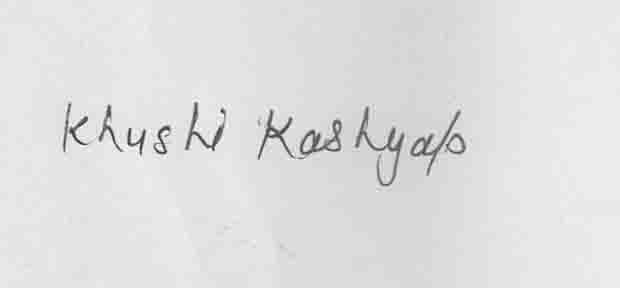 Khushi Kashyap